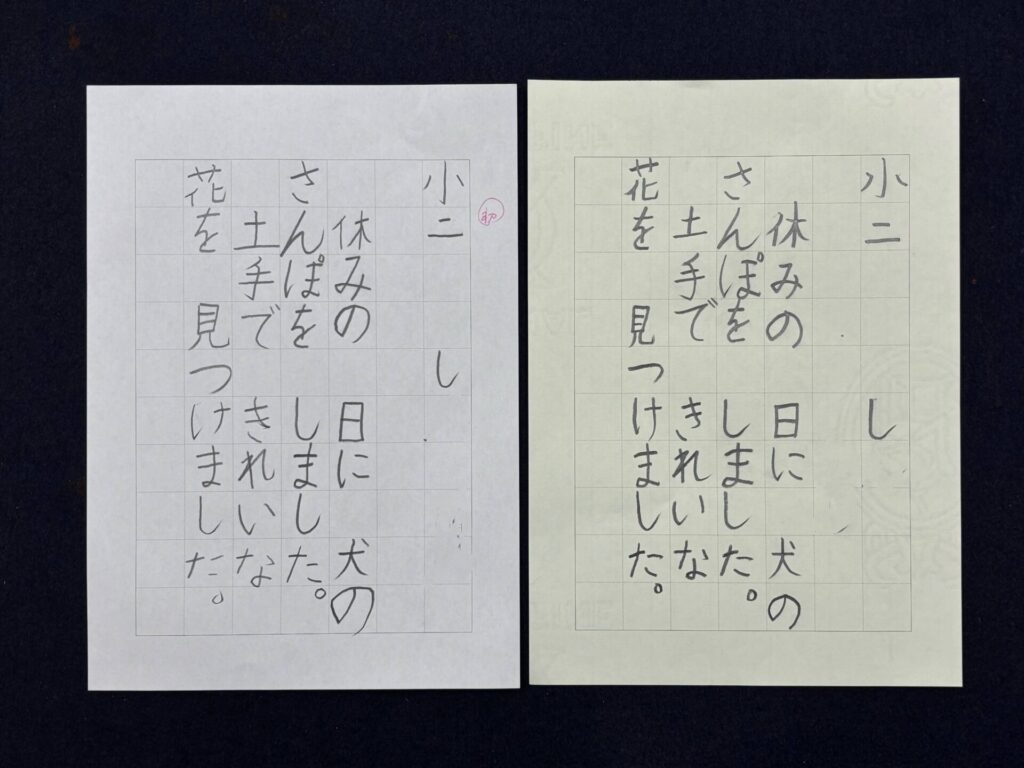 小二　し
休みの　日に　犬の
さんぽを　しました。
土手で　きれいな
花を　見つけました。
小二　し
休みの　日に　犬の
さんぽを　しました。
土手で　きれいな
花を　見つけました。